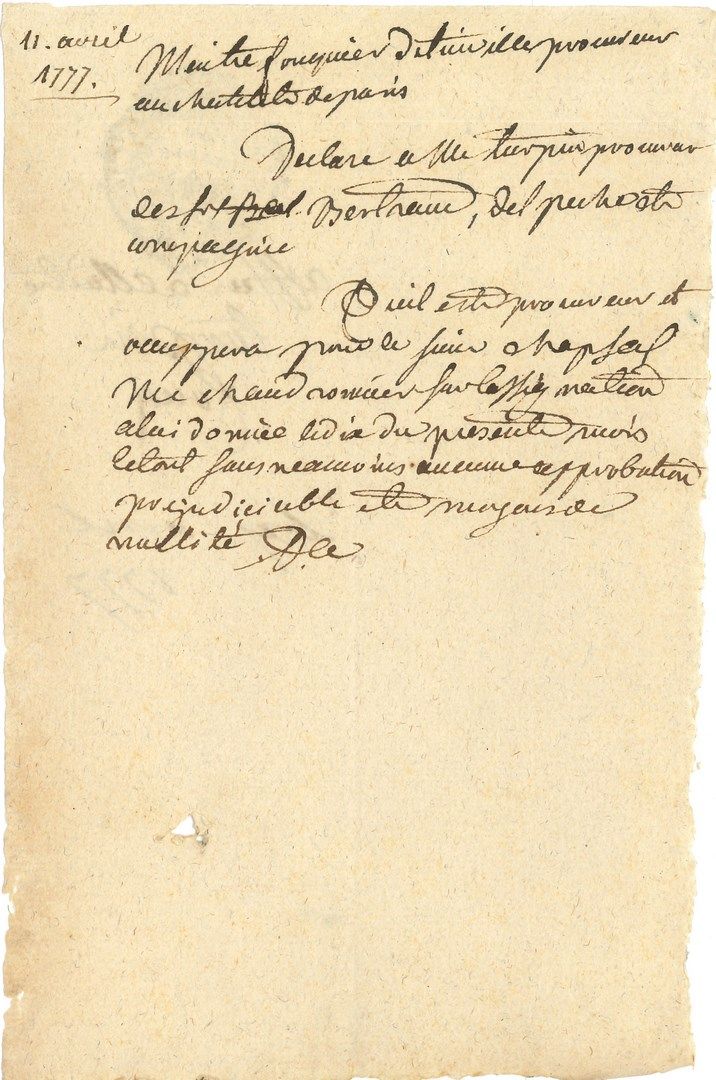 11. avril
1777.
Maitre fouquier Detinville procureur
au chatelet de paris
Declare a Me turpin procureur
des srs Bertrand, del peche et
compagnie
Quil est procureur et
occuppera pour le sieur chapsal
Md chaudronnier sur lassignation
a lui donnée le dix du present mois
le tout sans neanmoins aucune approbation
prejudiciable et moyens de
nullité D.